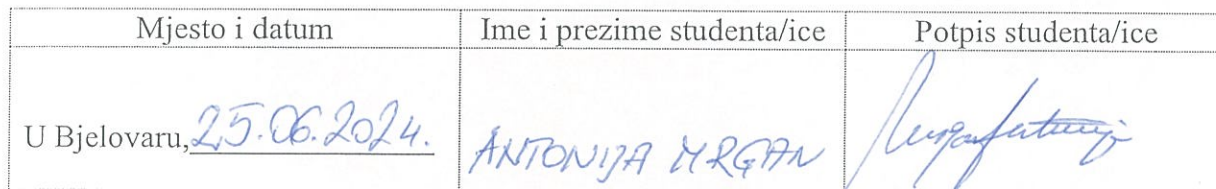 Mjesto i datum
Ime i prezime studenta/ice
Potpis studenta/ice
U Bjelovaru, 25.06.2024.
ANTONIJA MRGAN
Mrgan Antonija